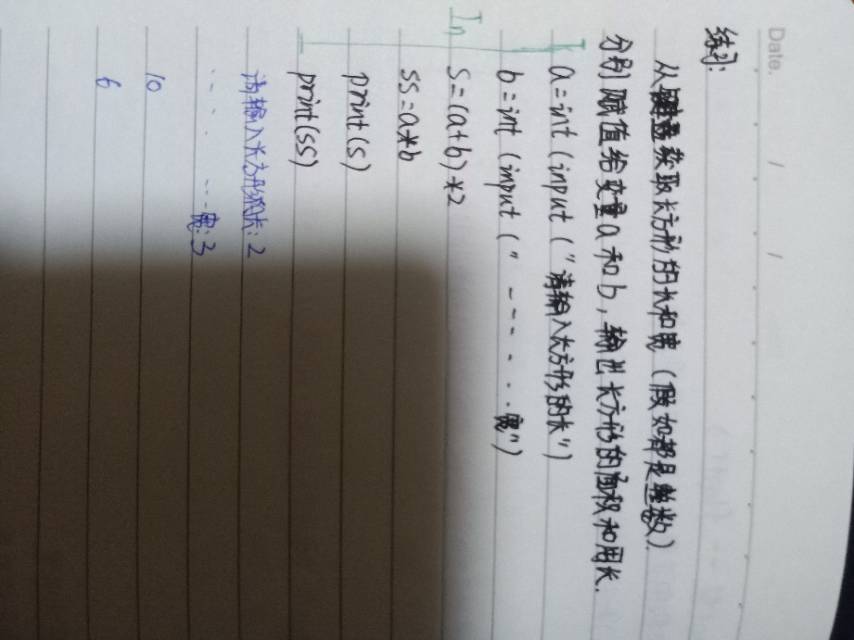 Date. / /
练习:
从键盘获取长方形的长和宽(假如都是整数)
分别赋值给变量a和b,输出长方形的面积和周长.
a=int (input ("请输入长方形的长")
b=int (input (" ------..宽")
In
S=(a+b)*2
SS=a*b
print(S)
print(SS)
请输入长方形的长:2
---. ---宽:3
10
6